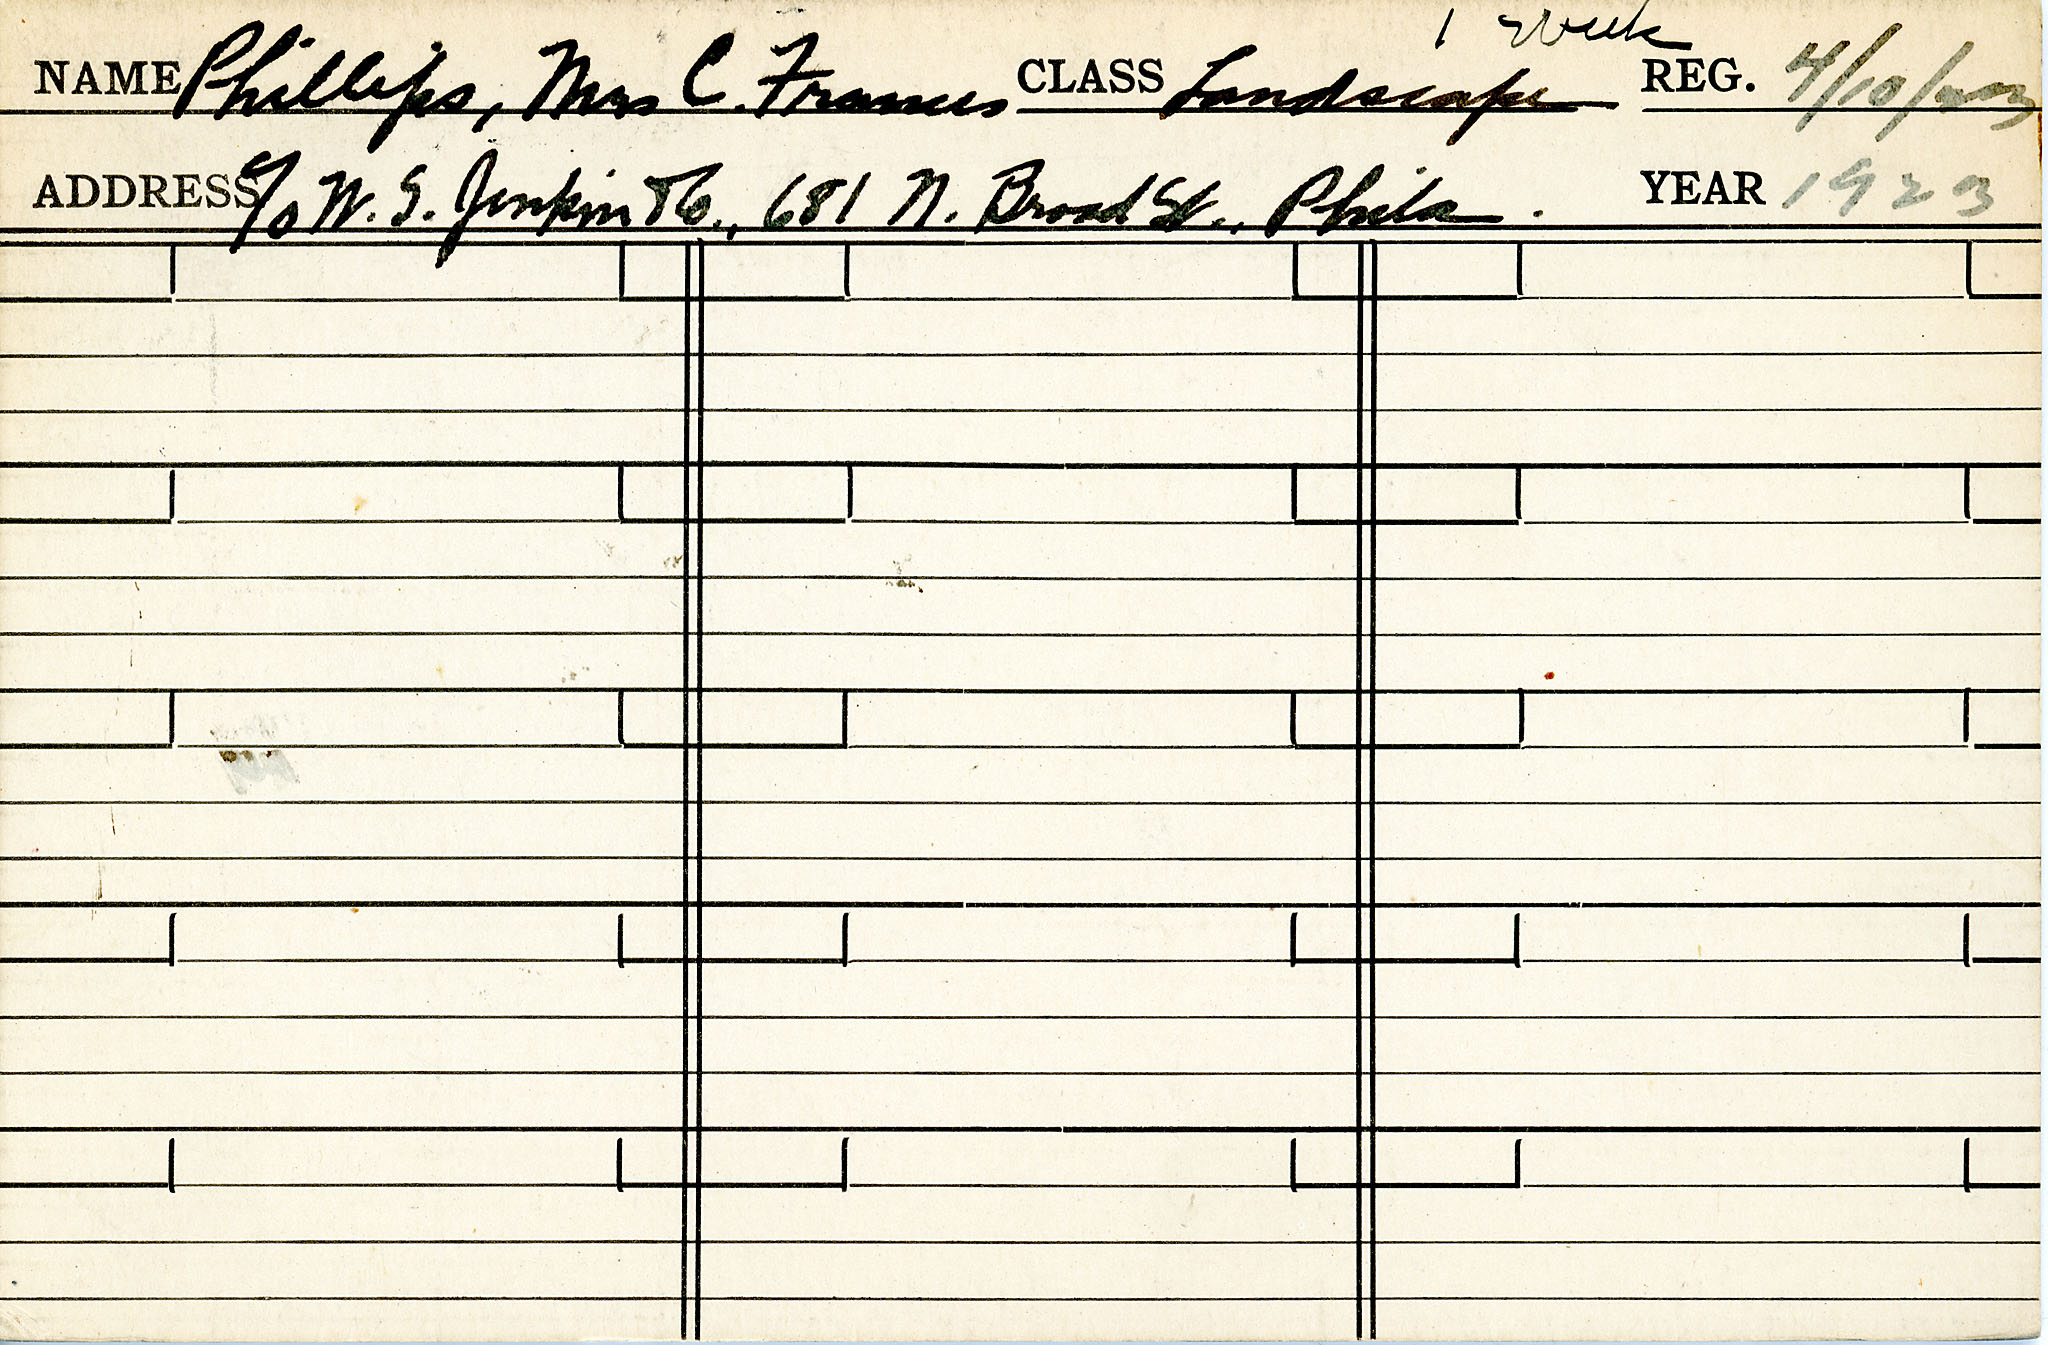 1 week
NAME Phillips, Mrs C. Francis CLASS Landscape REG. 4/10/23
ADDRESS c/o W. S. Jenkin Co., 681 N. Broad St., Phila. YEAR 1923